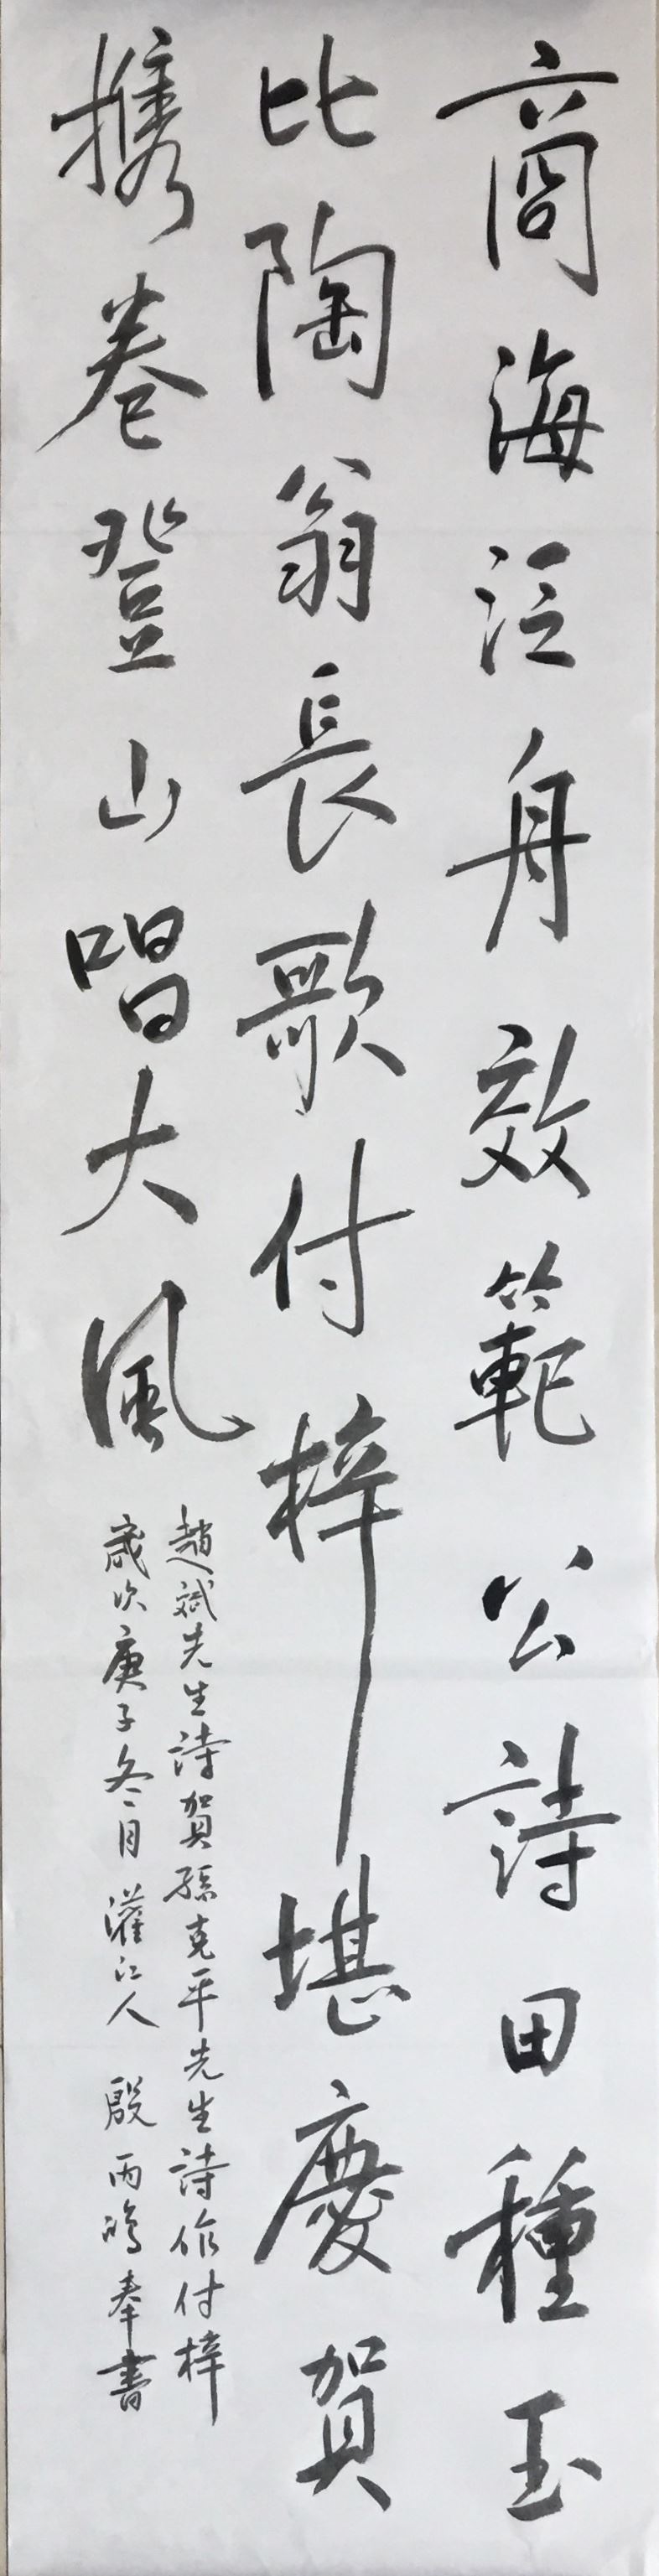 商海泛舟效範公詩田種玉
比陶翁長歌付梓堪慶賀
携卷登山唱大風
趙斌先生詩賀孫克平先生詩作付梓
歲次庚子冬月灌江人 殷丙鴻奉書